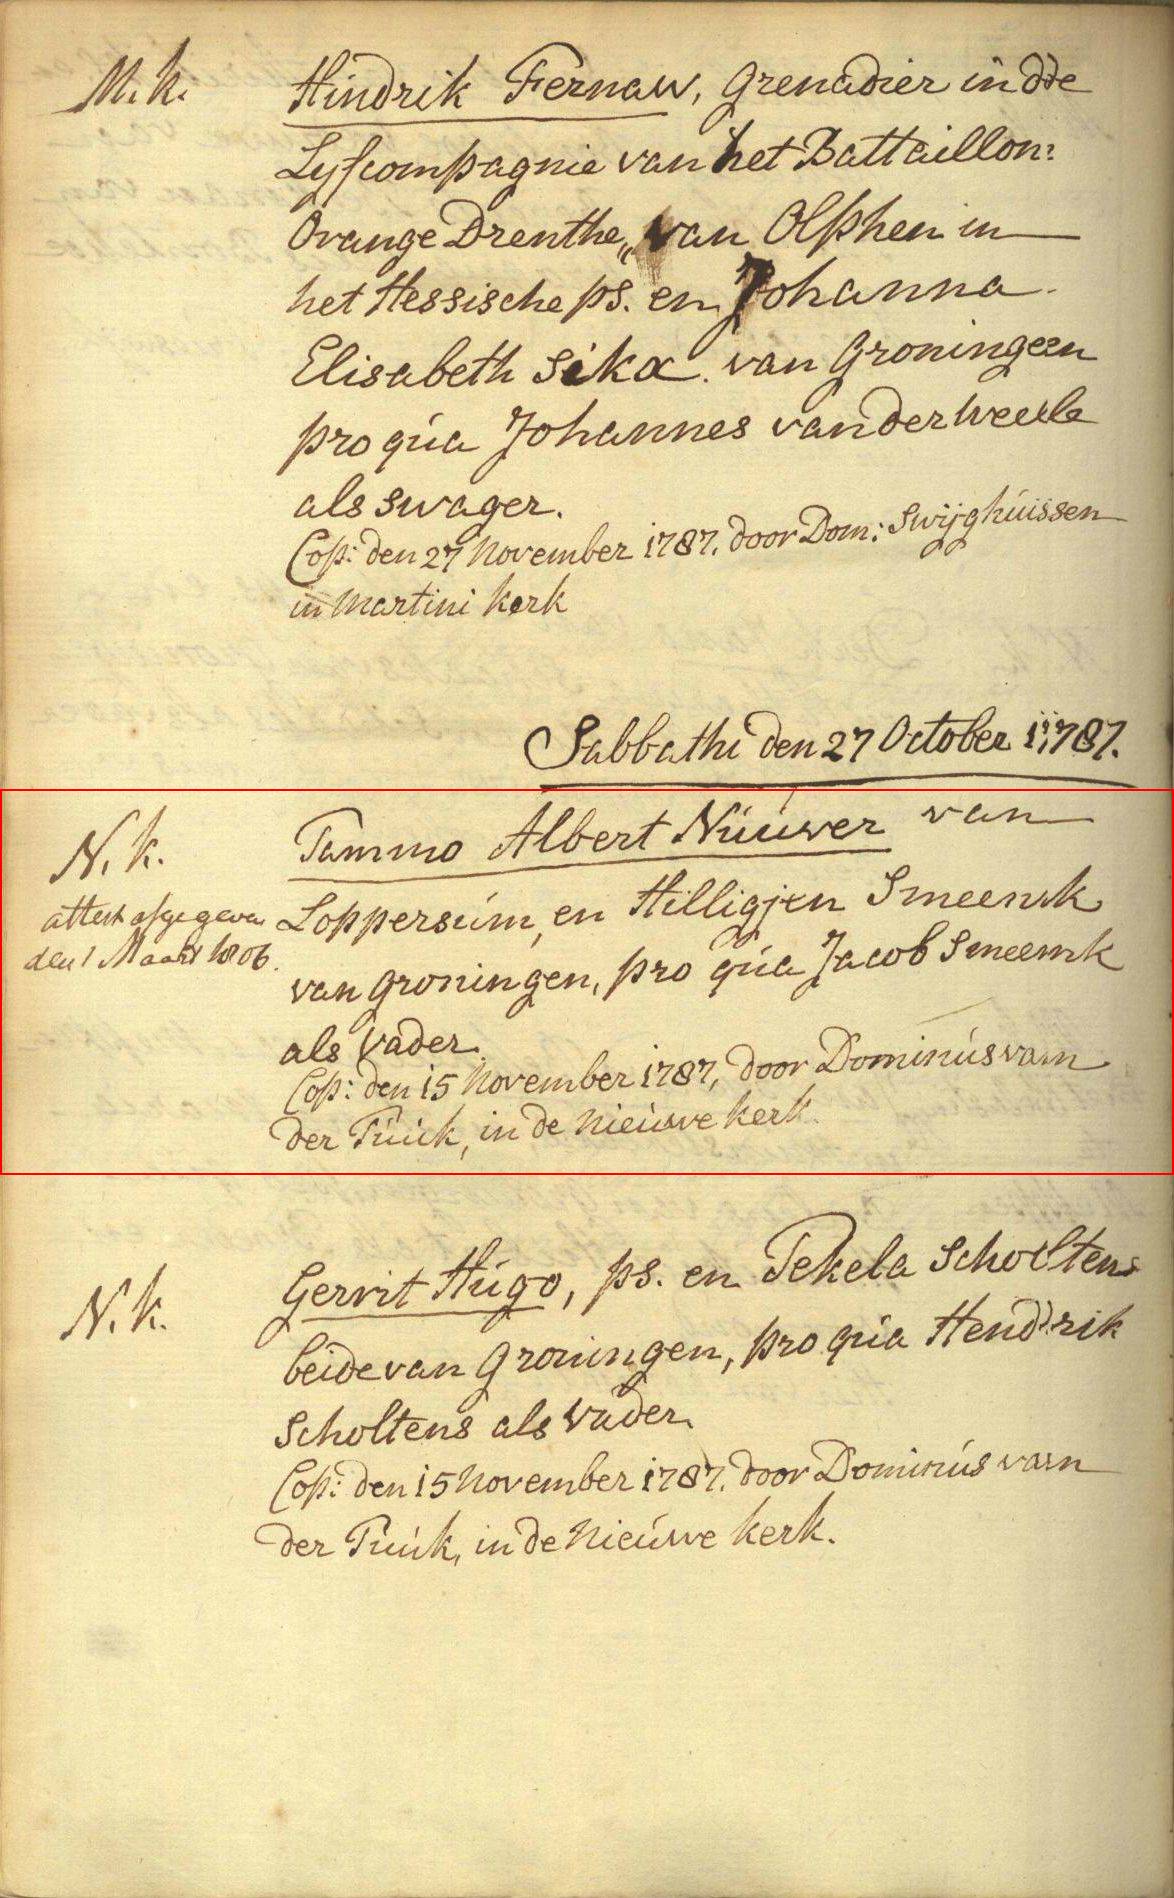 M. k.
Hindrik Fernaw, Grenadier in dde
Lyfcompagnie van het Battaillon:
Orange Drenthe,, van Olphen in
het Hessische ps. en Johanna
Elisabeth Sika. van Groningeen
pro qúa Johannes van der Weele
als swager.
Cop: den 27 November 1787. door Dom: Swijghúissen
in Martini kerk
Sabbathi den 27 October 1787.
N. k.
attest afgegeven
den 1 Maart 1806.
Tammo Albert Núúwer van
Loppersúm, en Hilligjen Smeenk
van Groningen, pro qúa Jacob Smeenk
als Vader.
Cop: den 15 November 1787, door Dominús van
der Túúk, in de Nieúwe kerk.
N. k.
Gerrit Húgo, ps. en Tekela Scholtens
beide van Groningen, pro qúa Hendrik
Scholtens als vader.
Cop: den 15 November 1787. door Dominús van
der Túúk, in de Nieúwe kerk.